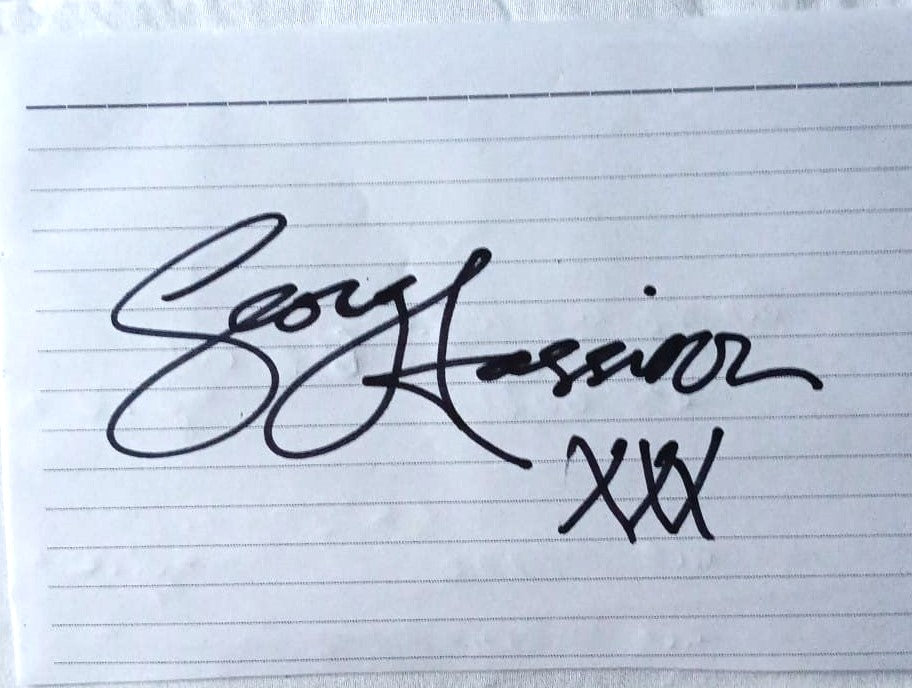 George Harrison
XXX